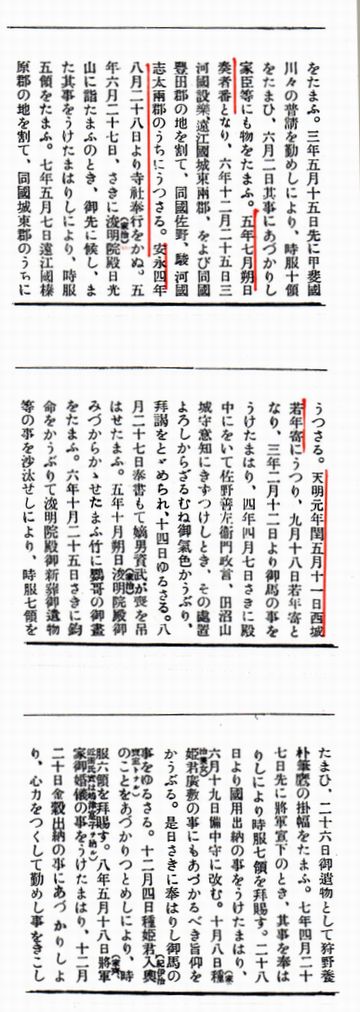 をたまふ。三年五月十五日先に甲斐國
川々の普請を勤めしにより、時服十領
をたまひ、六月二日其事にあづかりし
家臣等にも物をたまふ。五年七月朔日
奏者番となり、六年十二月二十五日三
河國設樂、遠江國城東兩郡、および同國
豐田郡の地を割て、同國佐野、駿河國
志太兩郡のうちにうつさる。安永四年
八月二十八日より寺社奉行をかぬ。五
年六月二十七日、さきに浚明院殿日光
山に詣たまふのとき、御先に候し、ま
た其事をうけたまはりしにより、時服
五領をたまふ。七年五月七日遠江國榛
原郡の地を割て、同國城東郡のうちに
うつさる。天明元年閏五月十一日西城
若年寄にうつり、九月十八日若年寄と
なり、三年二月十二日より御馬の事を
うけたまはり、四年四月七日さきに殿
中にをいて佐野善左衞門政言、田沼山
城守意知にきずつけしとき、その處置
よろしからざるむね御氣色かうぶり、
拜謁をとゞめられ、十四日ゆるさる。八
月二十七日奉書もて嫡男資武が喪を吊
はせたまふ。五年十月朔日浚明院殿御
みづからかゝせたまふ竹に鸚哥の御畫
をたまふ。六年十月二十五日さきに鈞
命をかうぶりて浚明院殿御新葬御遺物
等の事を沙汰せしにより、時服七領を
たまひ、二十六日御遺物として狩野養
朴筆鷹の掛幅をたまふ。七年四月二十
七日先に將軍宣下のとき、其事を奉は
りしにより時服七領を拜賜す。二十八
日より國用出納の事をうけたまはり、
六月十九日備中守に改む。十月八日種
姬君廣敷の事にもあづかるべき旨仰を
かうぶる。是日さきに奉はりし御馬の
事をゆるさる。十二月四日種姬君入輿
のことをあづかりつとめしにより、時
服六領を拜賜す。八年五月十八日將軍
家御婚儀の事をうけたまはり、十二月
二十日金穀出納の事にあづかりしよ
り、心力をつくして勤めし事をきこし